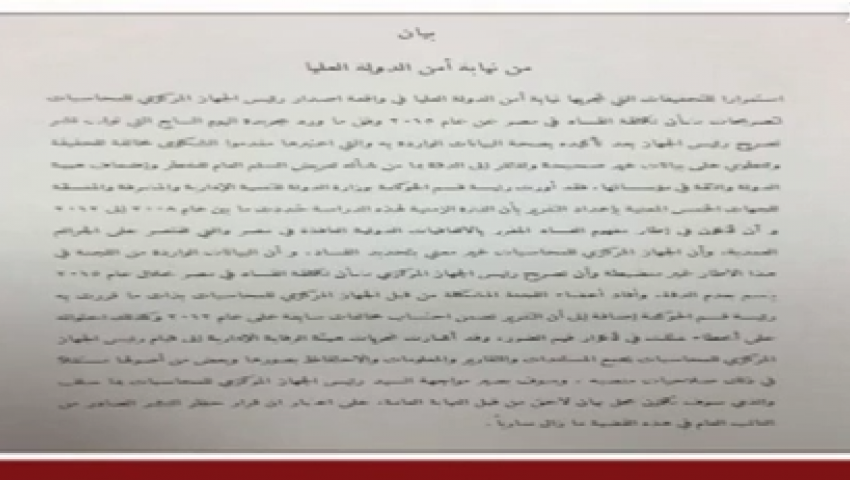 بيان
من نيابة أمن الدولة العليا
استمرارا للتحقيقات التي تجريها نيابة أمن الدولة العليا في واقعة اصدار رئيس الجهاز المركزي للمحاسبات
لتصريحات بشأن تكلفة الفساد في مصر عن عام ٢٠١٥ وفق ما ورد بجريدة اليوم السابع التي توارت نشر
تصريح رئيس الجهاز بعد تأكيده بصحة البيانات الواردة به والتي اعتبرها مقدموا الشكاوى مخالفة للحقيقة
وتنطوي على بيانات غير صحيحة وتفتقر إلى الدقة بما من شأنه تعريض السلم العام للخطر وإضعاف هيبة
الدولة والثقة في مؤسساتها ، فقد أوردت رئيسة قسم الحوكمة بوزارة الدولة للتنمية الإدارية والمشرفة والمنسقة
للجهات الخمس المعنية بإعداد التقرير بأن الفترة الزمنية لهذه الدراسة حددت ما بين عام ٢٠٠٨ إلى ٢٠١٢
و أن تكون في إطار مفهوم الفساد المقرر بالاتفاقيات الدولية النافذة في مصر والتي تقتصر على الجرائم
العمدية، وأن الجهاز المركزي للمحاسبات غير معني بتحديد الفساد، و أن البيانات الواردة من اللجنة في
هذا الاطار غير منضبطة وأن تصريح رئيس الجهاز المركزي بشأن تكلفة الفساد في مصر خلال عام ٢٠١٥
يتسم بعدم الدقة، وأفاد أعضاء اللجنة المشكلة من قبل الجهاز المركزي للمحاسبات بذات ما قررت به
رئيسة قسم الحوكمة إضافة إلى أن التقرير تضمن احتساب مخالفات سابقة على عام ٢٠١٢ وكذلك احتوائه
على أخطاء تمثلت في تكرار قيم الضرر، وقد أشارت تحريات هيئة الرقابة الإدارية إلى قيام رئيس الجهاز
المركزي للمحاسبات بجمع المستندات والتقارير والمعلومات والاحتفاظ بصورها وبعض من أصولها مستغلا
في ذلك صلاحيات منصبه ، وسوف يصير مواجهة السيد رئيس الجهاز المركزي للمحاسبات بما سلف
والذي سوف تكون محل بيان لاحق من قبل النيابة العامة، على اعتبار ان قرار حظر النشر الصادر من
النائب العام في هذه القضية ما زال ساريا .